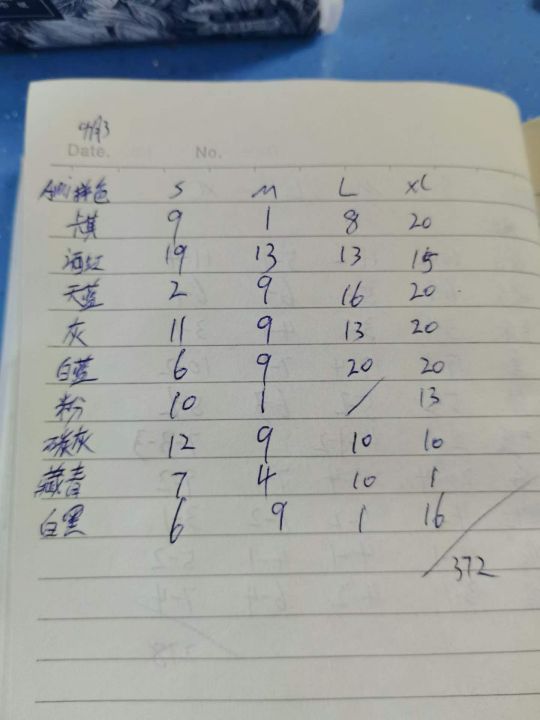 9月3
Date. No.
拼色 S M L XL
卡其 9 1 8 20
酒红 19 13 13 15
天蓝 2 9 16 20
灰 11 9 13 20
白蓝 6 9 20 20
粉 10 1 / 13
碳灰 12 9 10 10
藏青 7 4 10 1
白黑 6 9 1 16
372